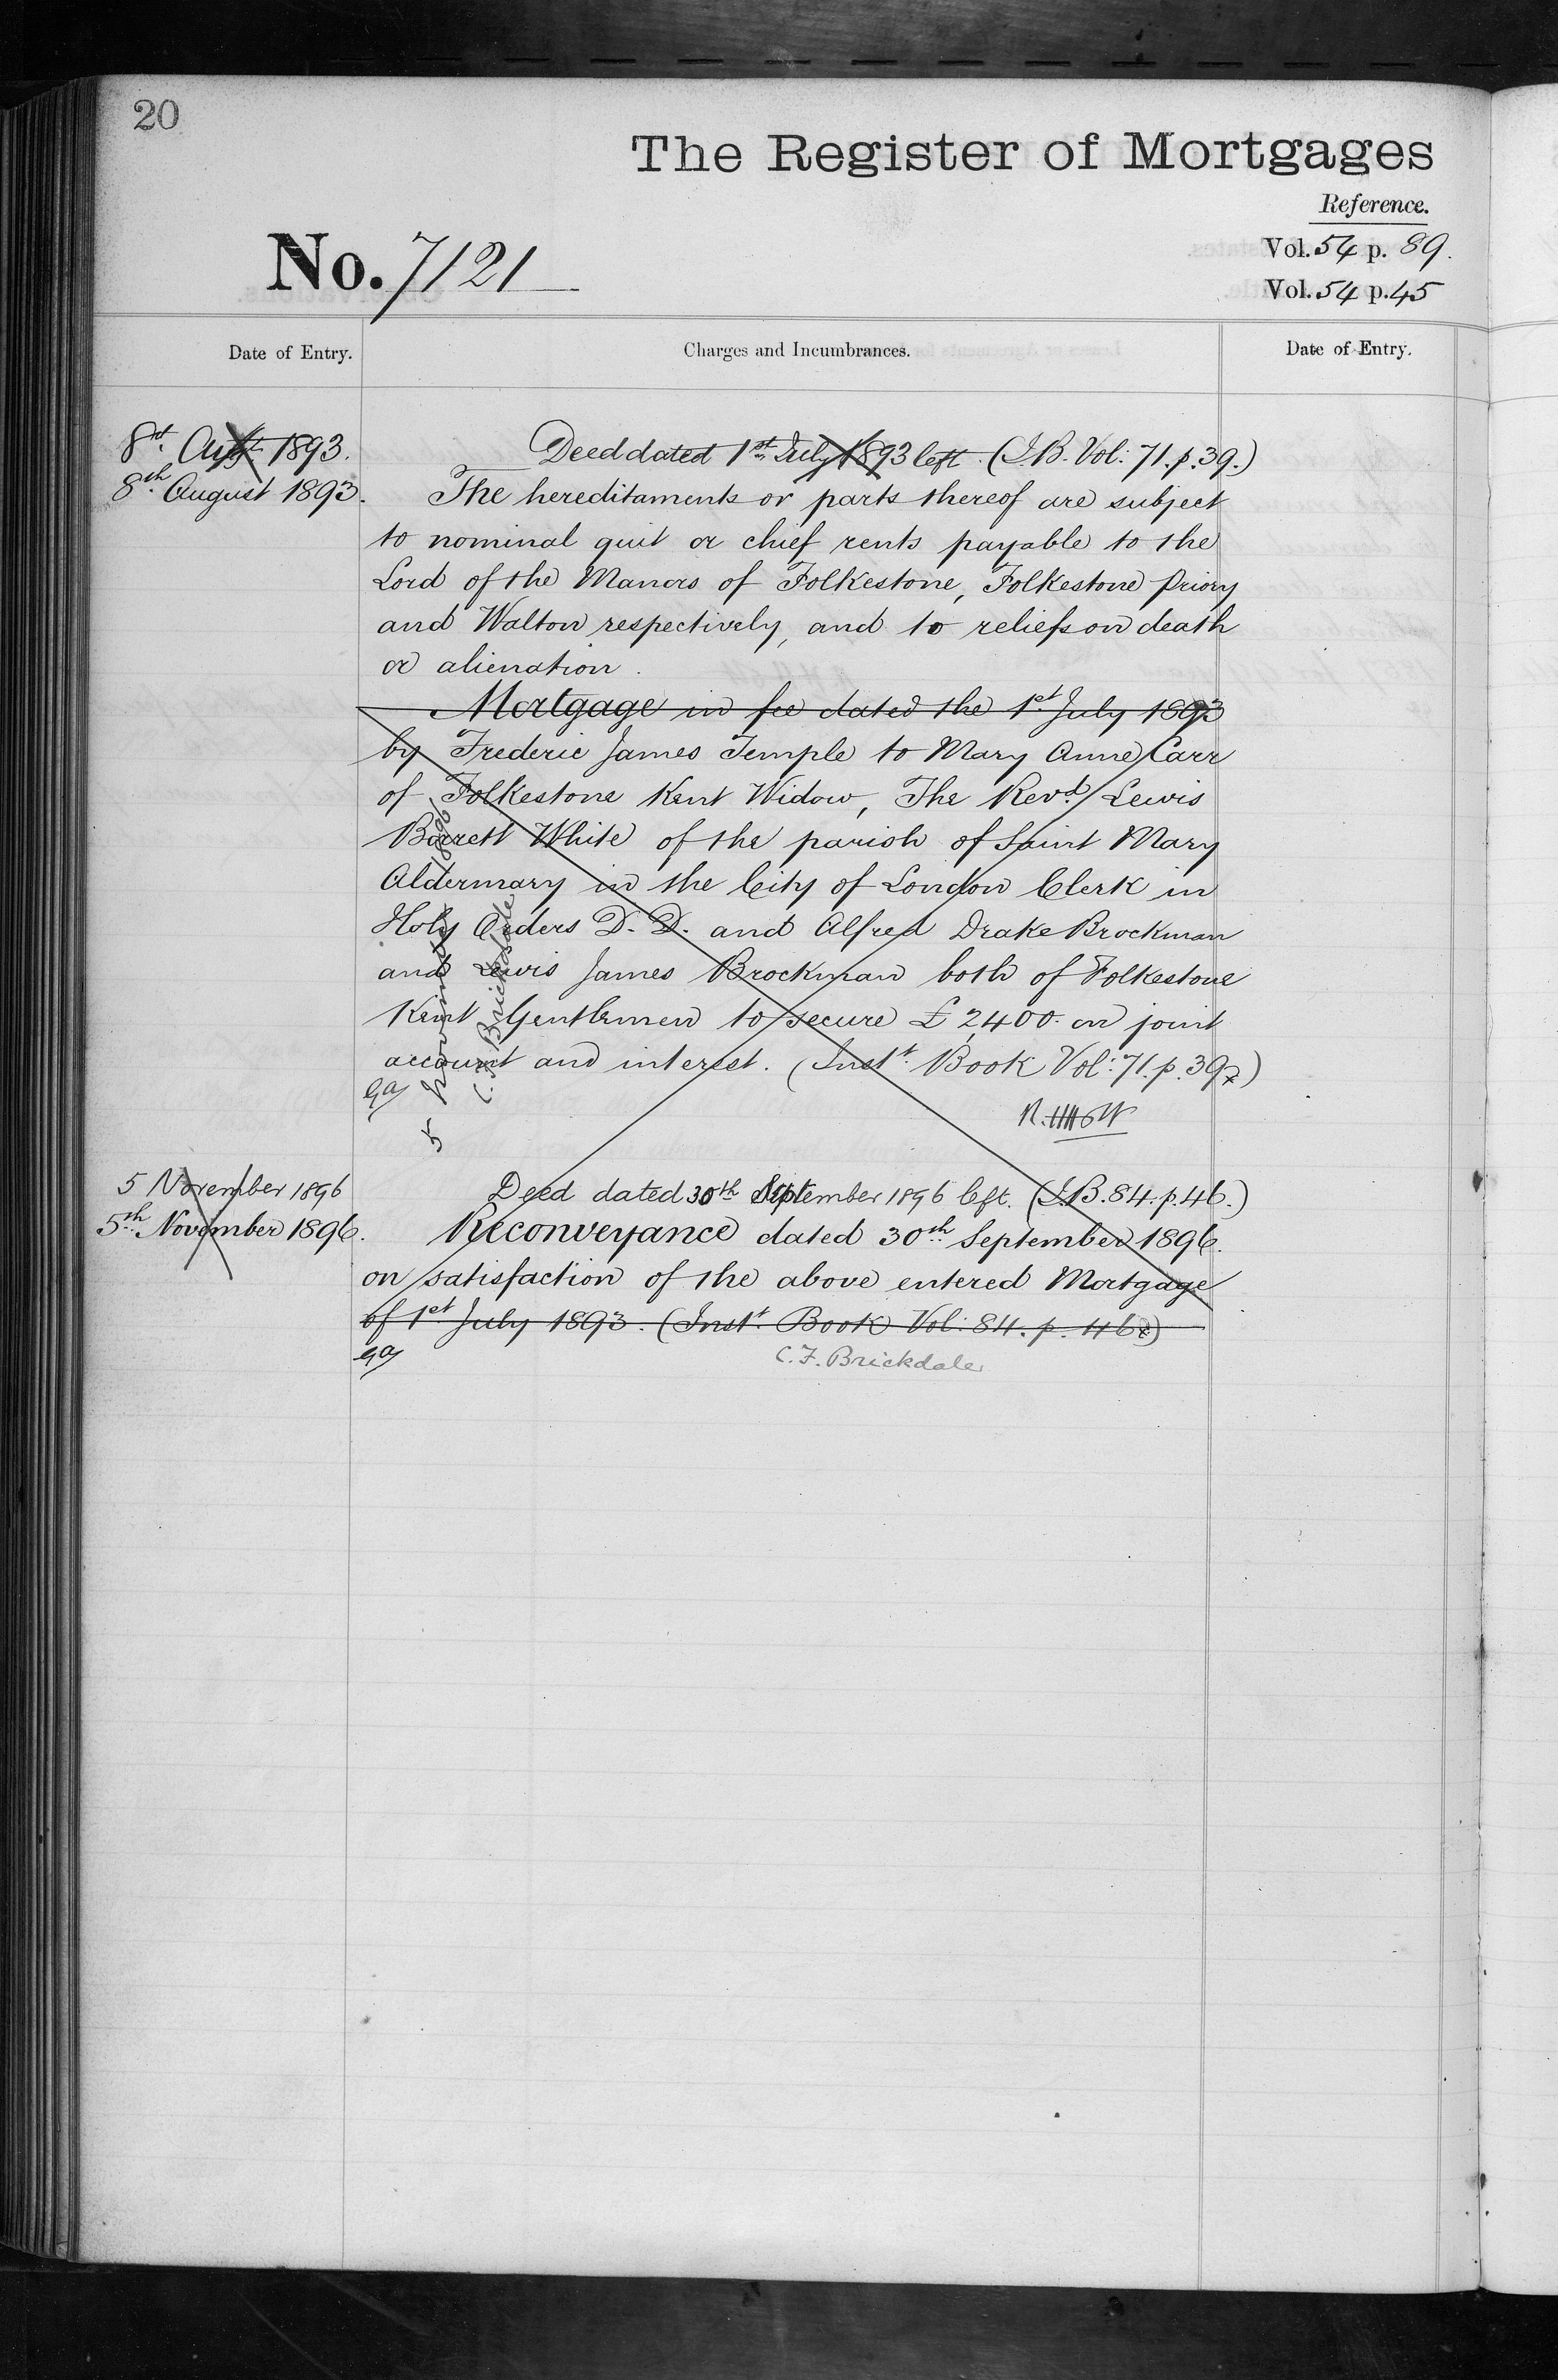 20
The Register of Mortgages
Reference.
No. 7121
Vol. 54 p. 89.
Vol. 54 p. 45
Date of Entry.
Charges and Incumbrances.
Date of Entry.
8st Augst 1893.
Deed dated 1st July 1893 left (I.B. Vol: 71. p. 39.)
8th August 1893.
The hereditaments or parts thereof are subject
to nominal quit or chief rents payable to the
Lord of the Manors of Folkestone, Folkestone Priory
and Walton respectively, and to reliefs on death
or alienation.
Mortgage in fee dated the 1st July 1893
by Frederic James Temple to Mary Anne Carr
of Folkestone Kent Widow, The Revd. Lewis
Borrett White of the parish of Saint Mary
Aldermary in the City of London Clerk in
Holy Orders D. D. and Alfred Drake Brockman
and Lewis James Brockman both of Folkestone
Kent Gentlemen to secure £2,400 on joint
account and interest. (Instt. Book Vol: 71. p. 39)
5 November 1896
C. F. Brickdale
5 November 1896
Deed dated 30th September 1896 left. (I.B. 84. p. 46.)
5th November 1896.
Reconveyance dated 30th September 1896.
on satisfaction of the above entered Mortgage
of 1st July 1893. (Instt. Book Vol: 84. p. 46)
C. F. Brickdale